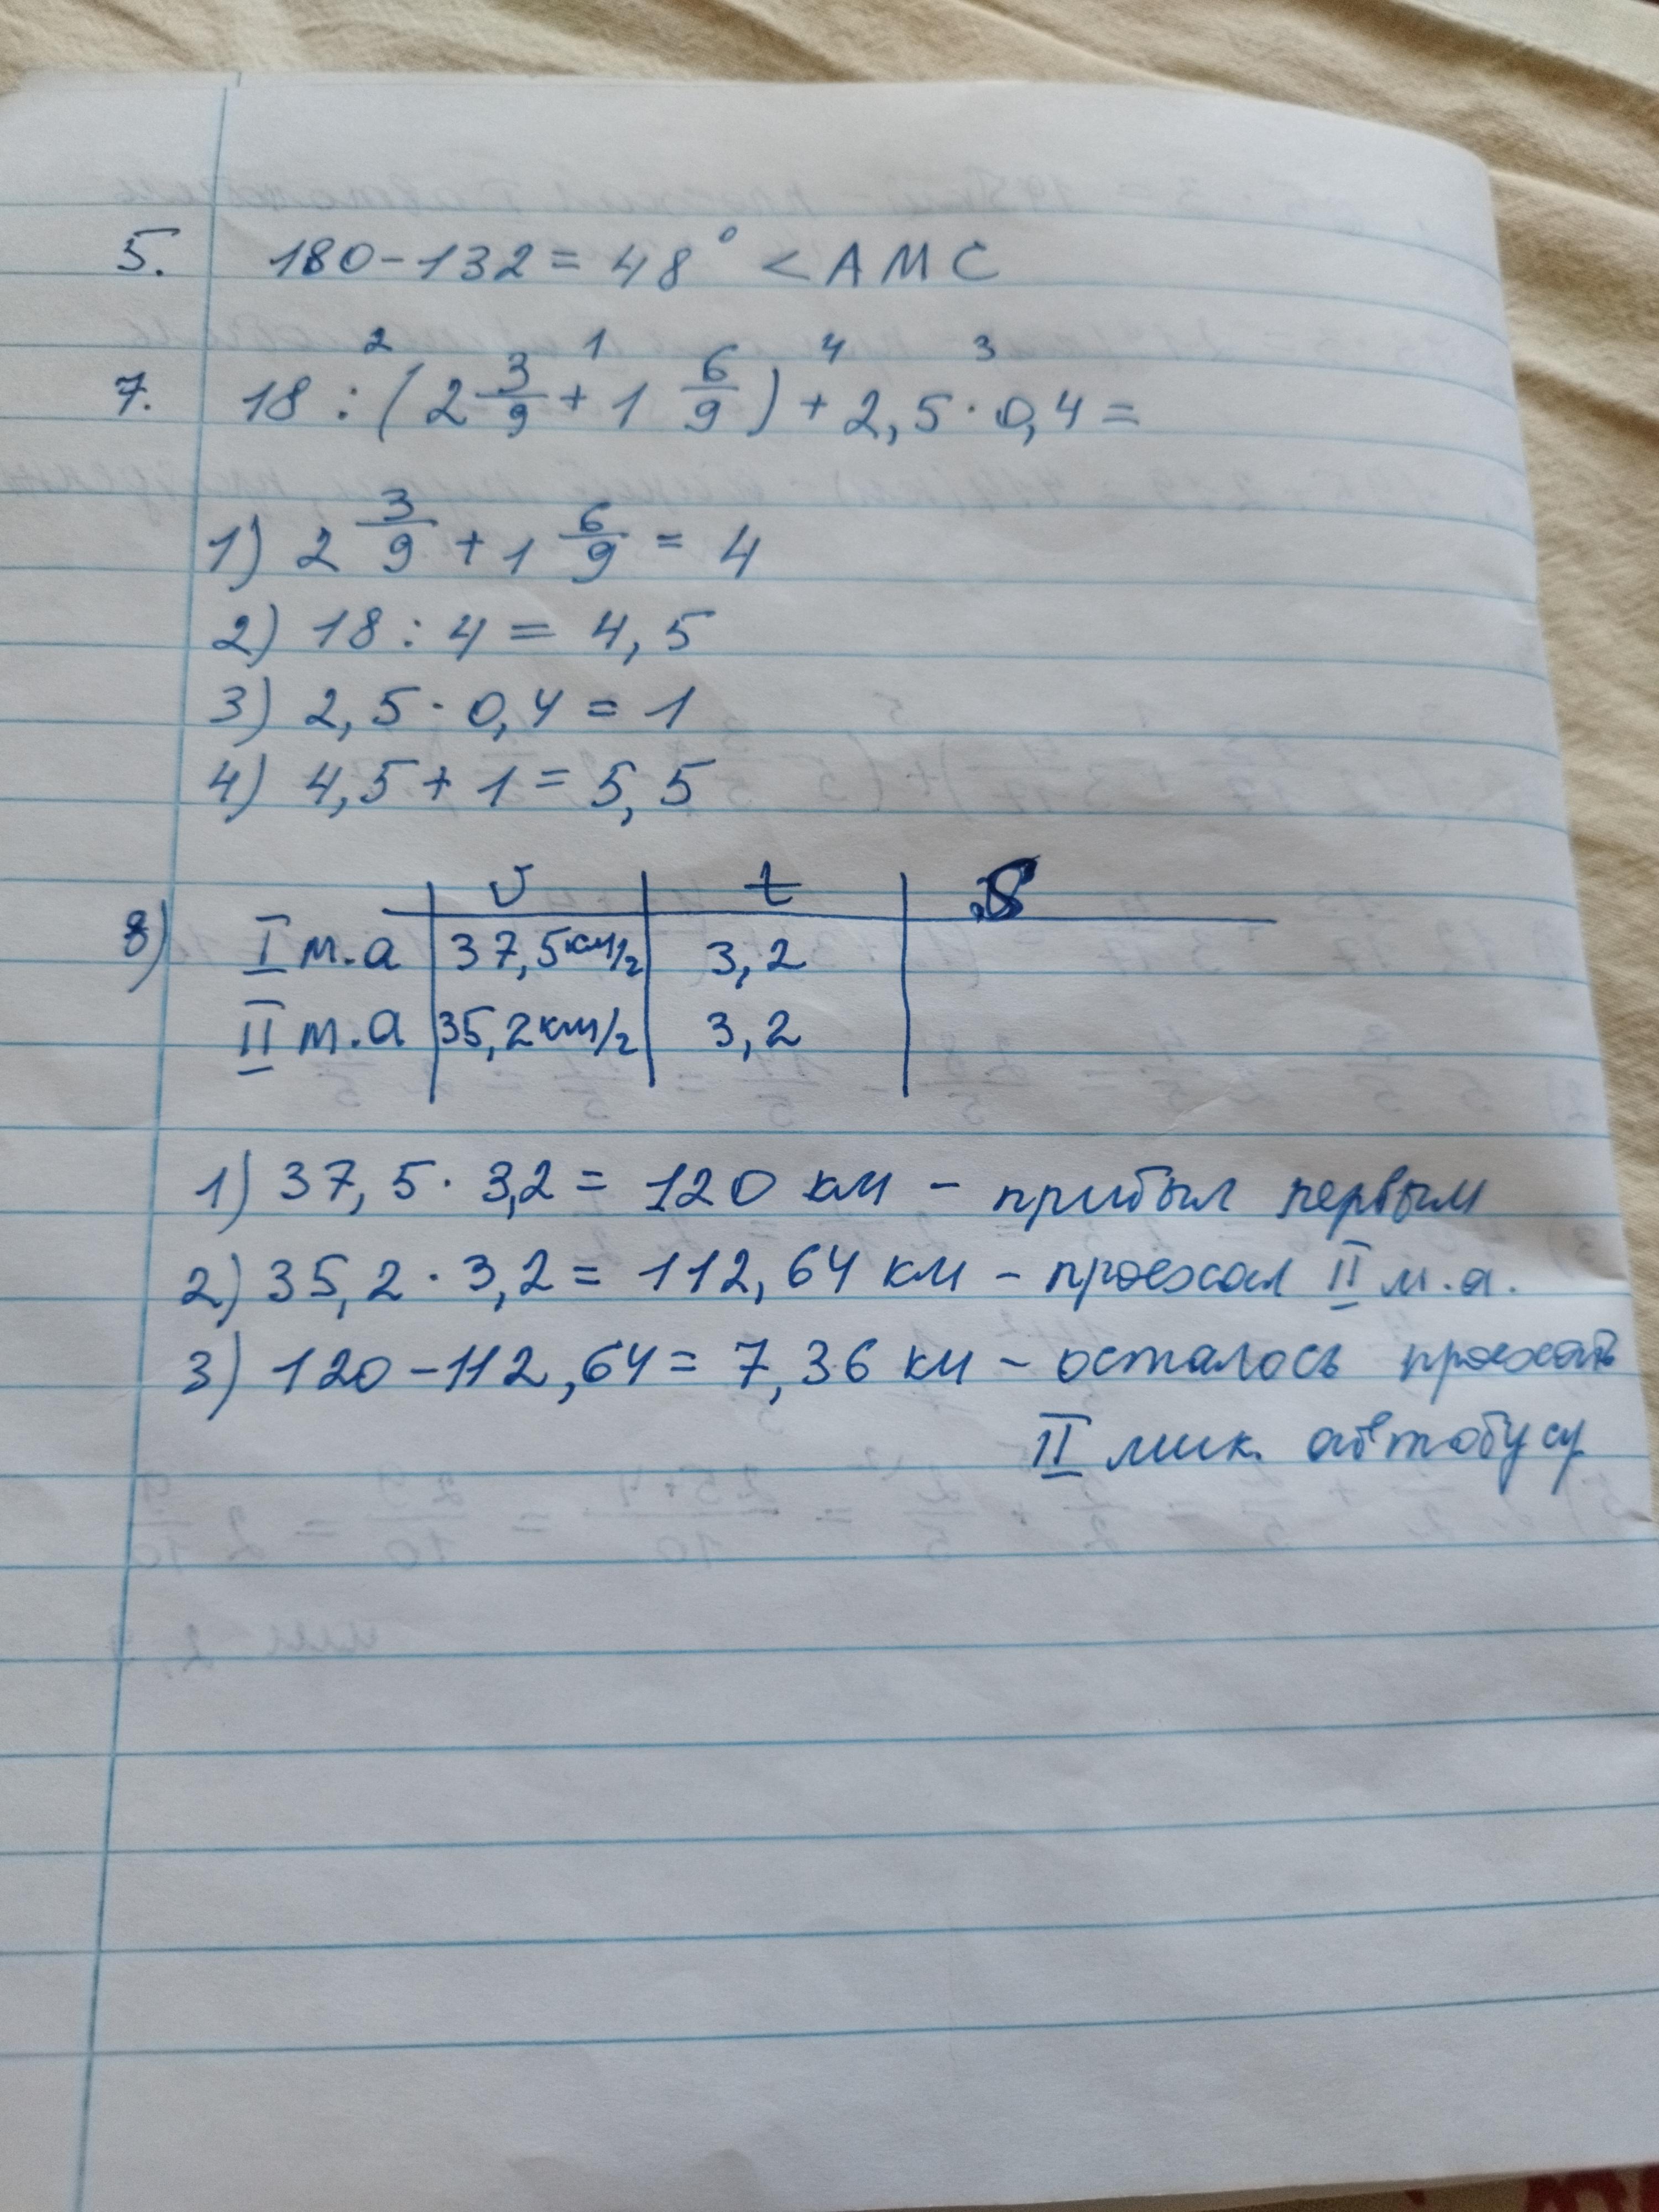 5. 180-132=48° <АМС
7. 18:(2 3/9+1 6/9)+2,5·0,4=
2 1 4 3
1) 2 3/9+1 6/9=4
2) 18:4=4,5
3) 2,5·0,4=1
4) 4,5+1=5,5
v t S
8) I м.а 37,5км/г 3,2
II м.а 35,2км/г 3,2
1) 37,5·3,2=120 км - прибыл первым
2) 35,2·3,2=112,64 км - проехал II м.а.
3) 120-112,64=7,36 км - осталось проехать
II мик. автобусу